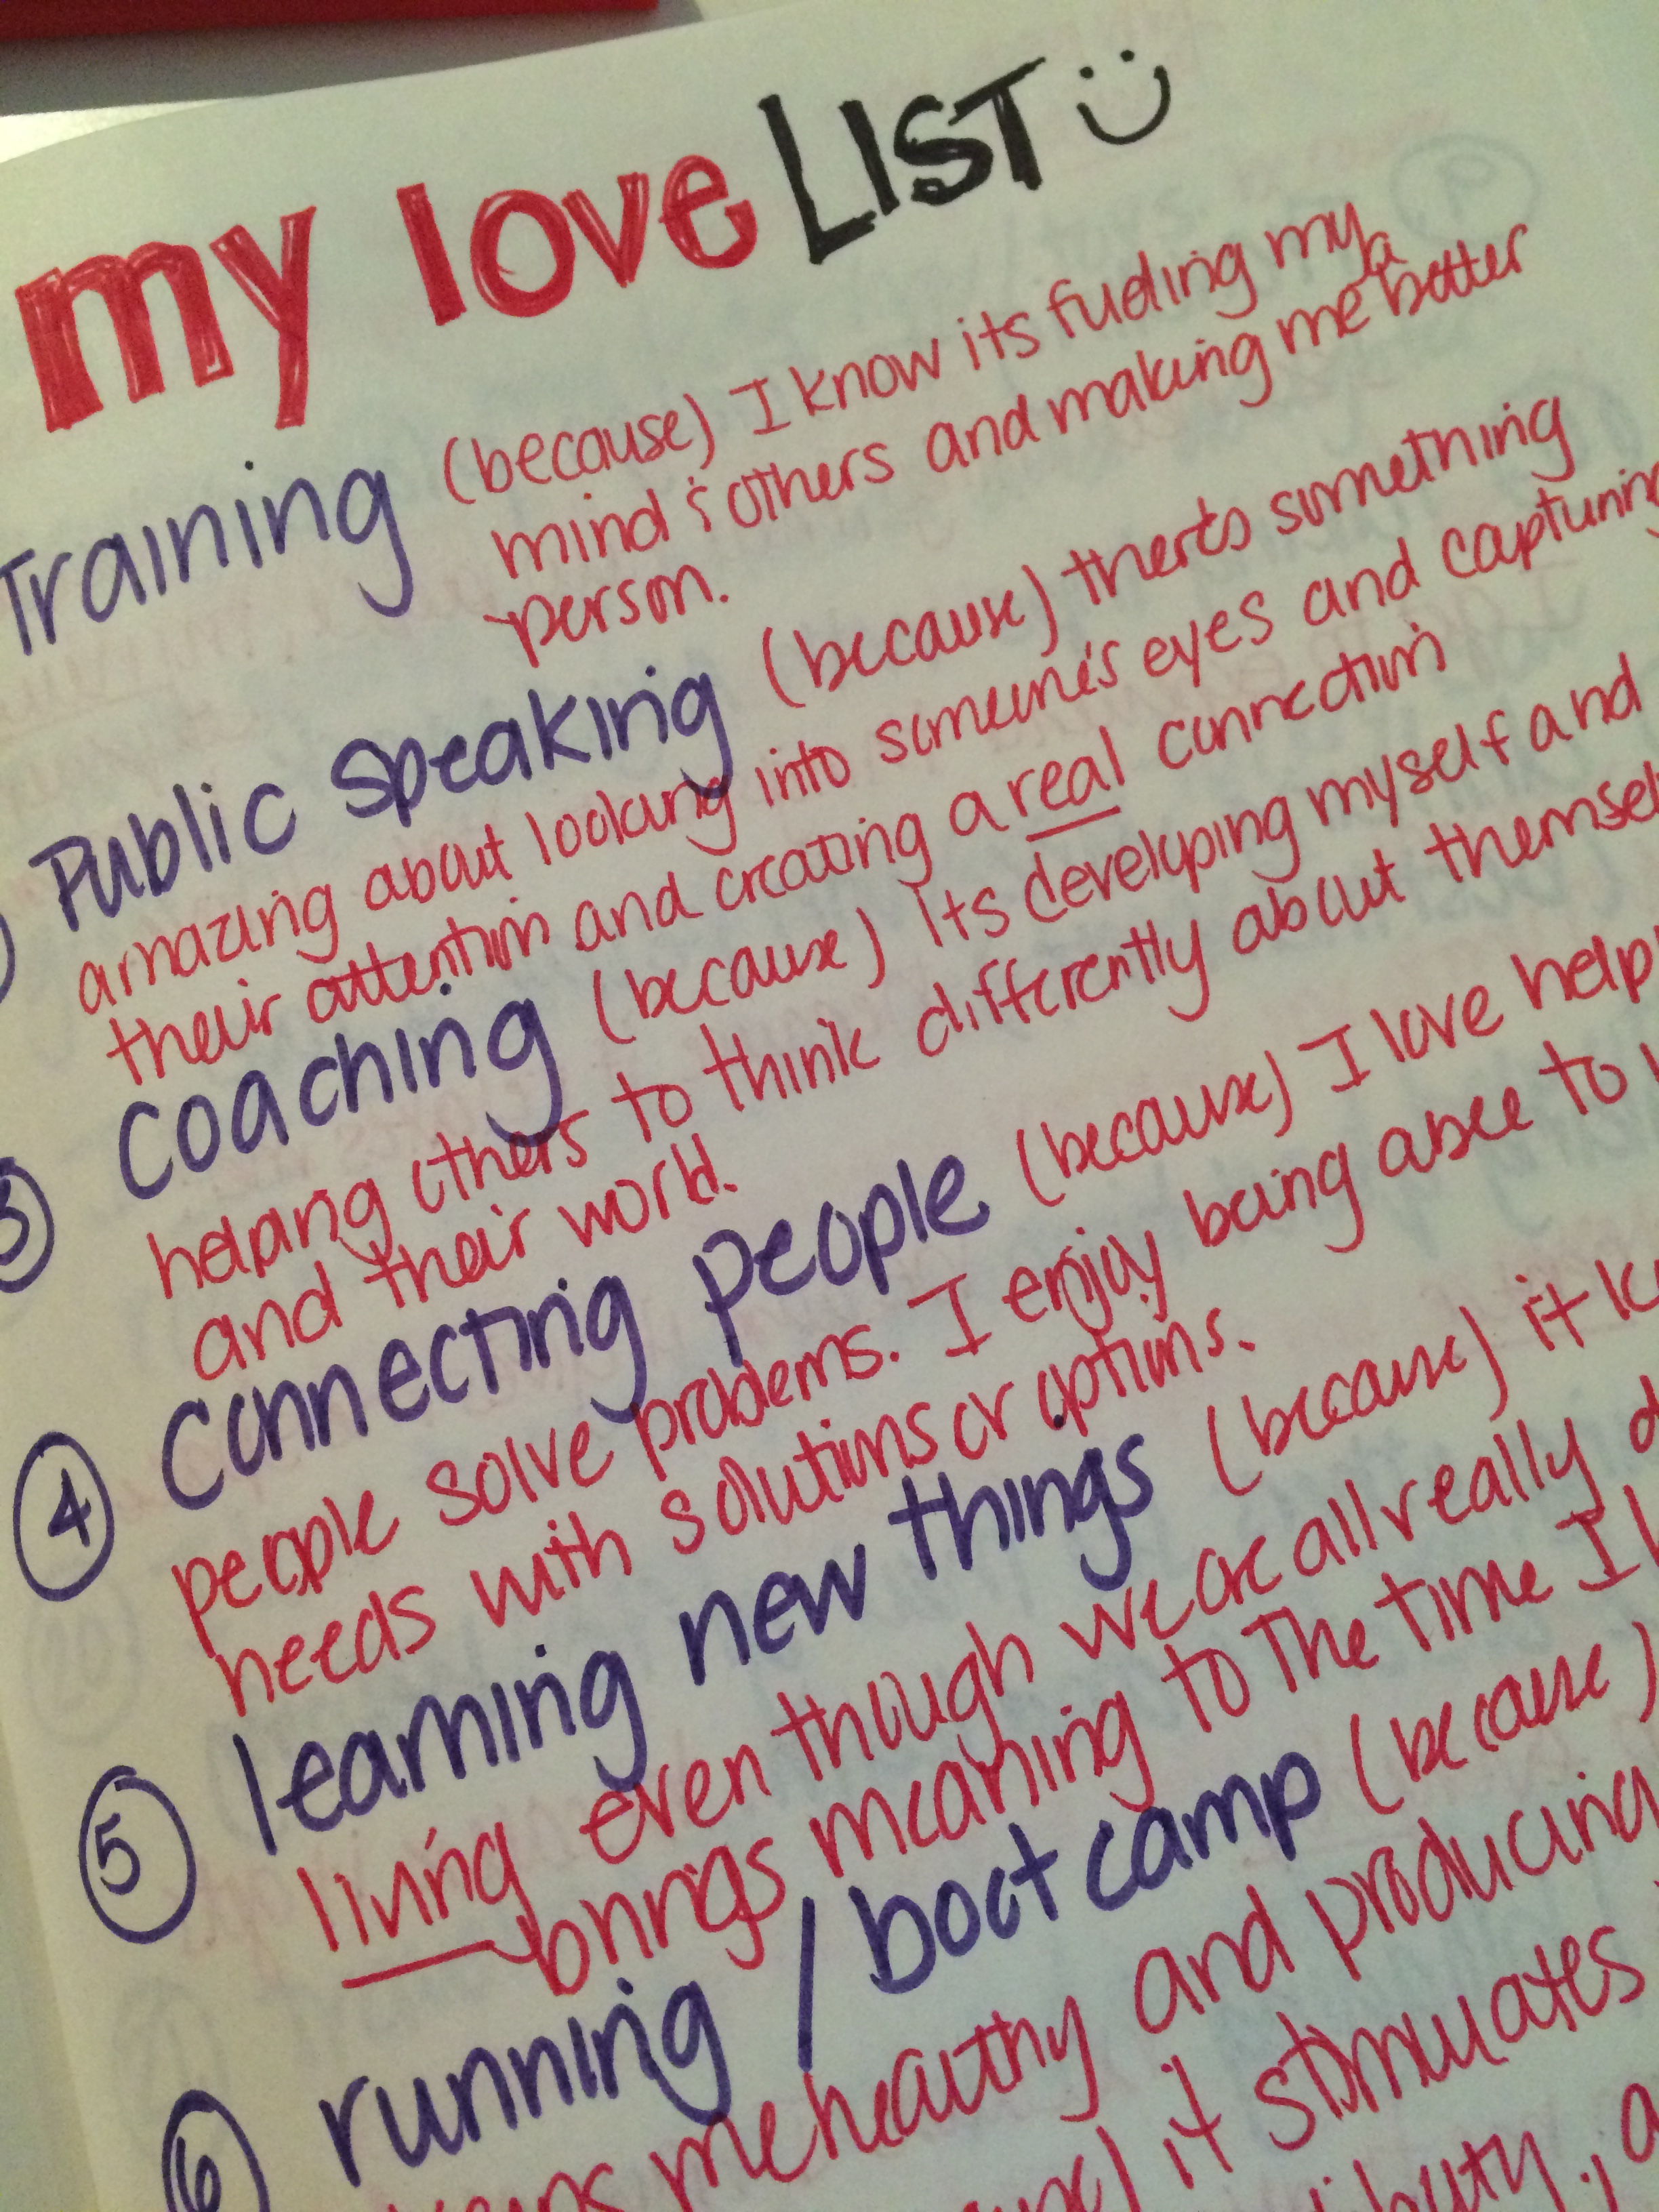 my love LIST
Training (because) I know its fueling my
mind & others and making me a better
person.
Public Speaking (because) there's something
amazing about looking into someone's eyes and capturing
their attention and creating a real connection
3 Coaching (because) Its developing myself and
helping others to think differently about
and their world.
4 Connecting people (because) I love
people solve problems. I enjoy being able to
needs with solutions or options.
5 learning new things (because) it
living even though we are all really
brings meaning to the time I
6 running / boot camp (because)
me healthy and producing
it stimulates